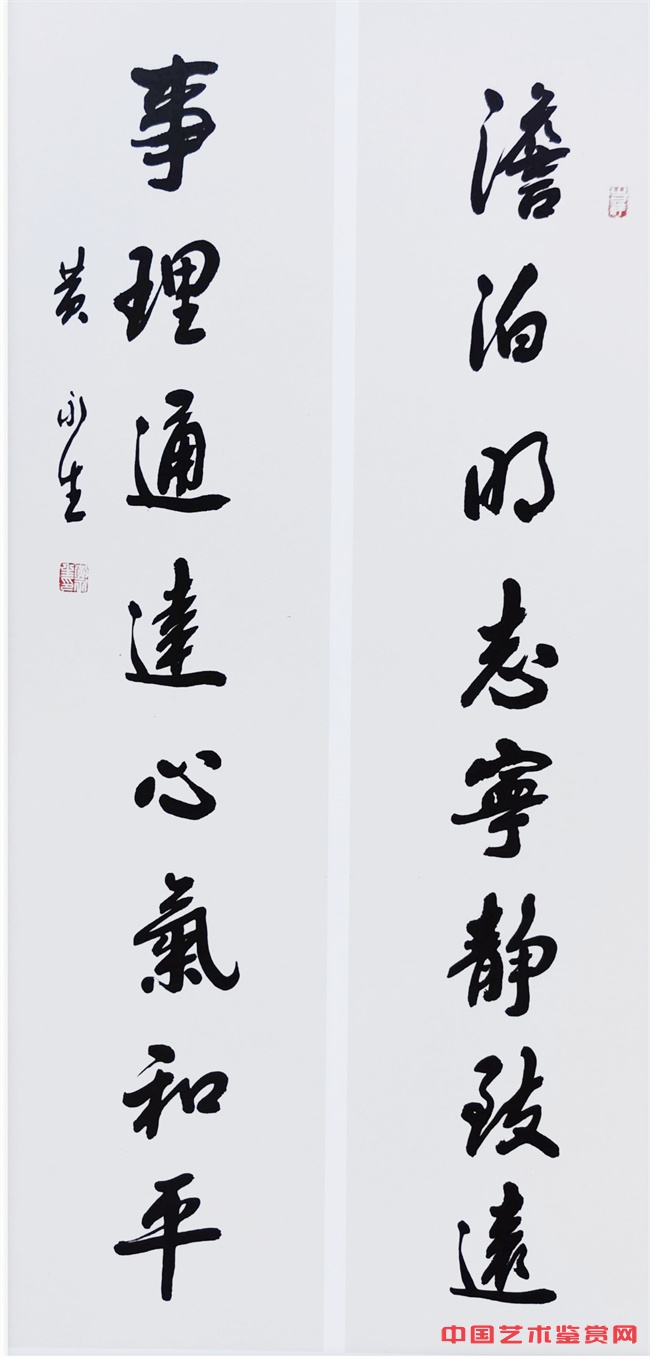 澹泊明志寧静致遠
事理通達心氣和平
黄永生
中国艺术鉴赏网